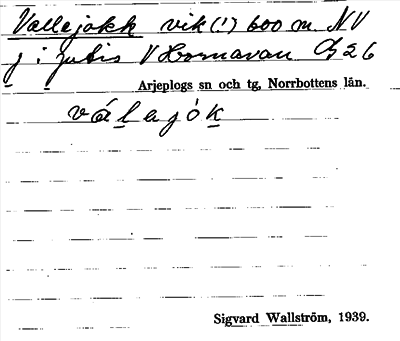 Vallejokk vik (!) 600 m. NV
j i jutis V Hornavan G 26
Arjeplogs sn och tg, Norrbottens län.
válajók
Sigvard Wallström, 1939.